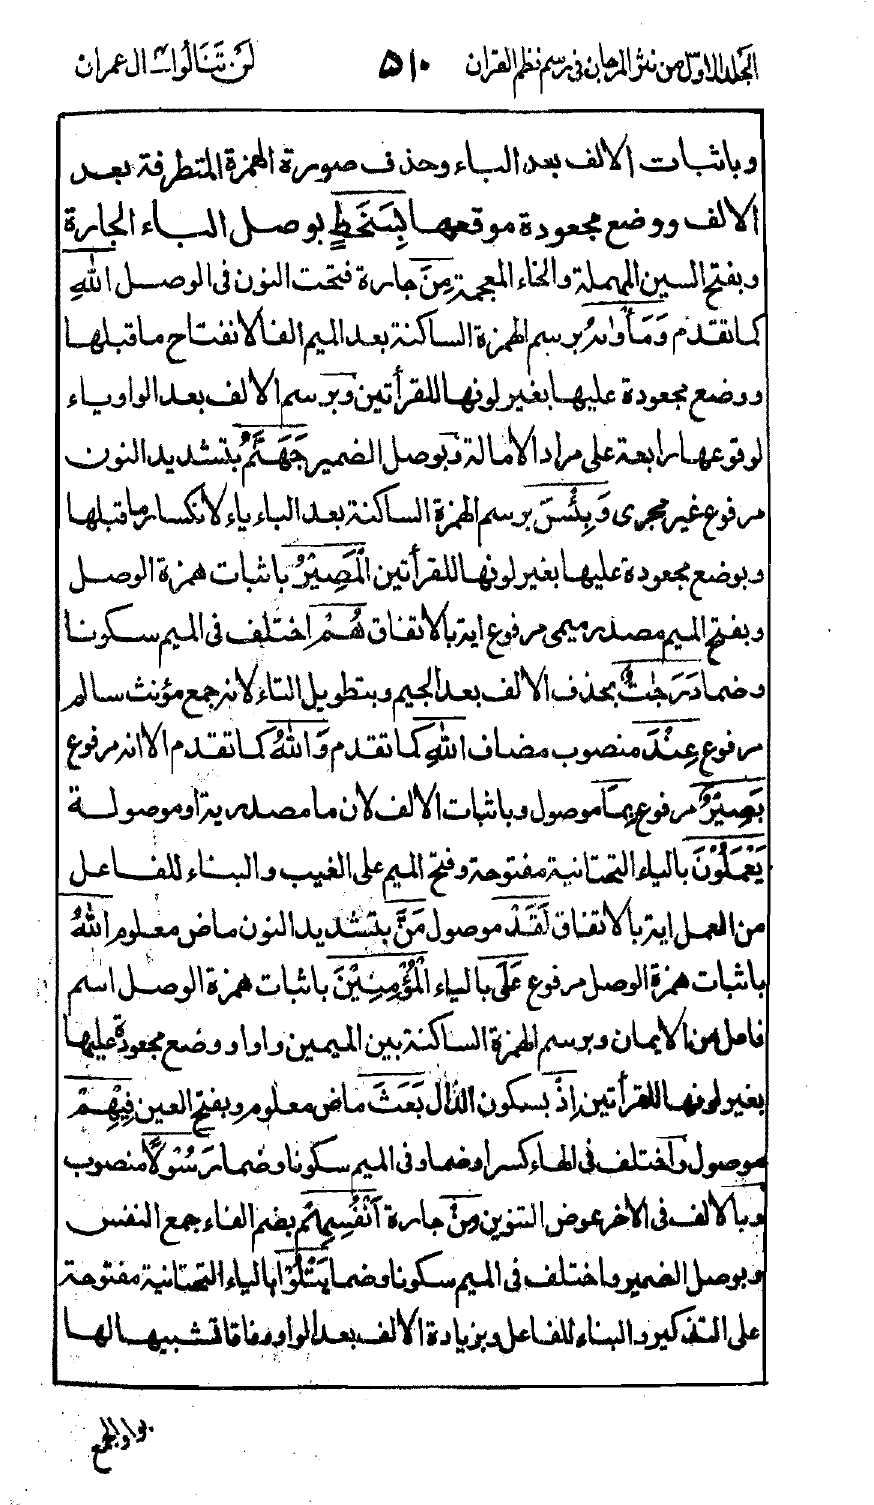 الجلد الاول من نثر المرجان فى رسم نظم القران ٥١٠ لَنْ تَنَالُوا ٤ اٰل عمران
وباثبات الالف بعد الباء وحذف صورة الهمزة المتطرفة بعد
الالف ووضع مجعودة موقعها بِسَخَطٍ بوصل الباء الجارة
وبفتح السين المهملة والخاء المعجمة مِنَ جارة فتحت النون فى الوصل اللهِ
كما تقدم وَمَأْوٰىهُ برسم الهمزة الساكنة بعد الميم الفا لانفتاح ما قبلها
ووضع مجعودة عليها بغير لونها للقرأتين وبرسم الالف بعد الواو ياء
لوقوعها رابعة على مراد الامالة وبوصل الضمير جَهَنَّمُ بتشديد النون
مرفوع غير مجرى وَبِئْسَ برسم الهمزة الساكنة بعد الباء ياء لانكسار ما قبلها
وبوضع مجعودة عليها بغير لونها للقرأتين الْمَصِيْرُ باثبات همزة الوصل
وبفتح الميم مصدر ميمى مرفوع اية بالاتفاق هُمْ اختلف فى الميم سكونا
وضما دَرَجٰتٌ بحذف الالف بعد الجيم وبتطويل التاء لانه جمع مؤنث سالم
مرفوع عِنْدَ منصوب مضاف اللهِ كما تقدم وَاللهُ كما تقدم الا انه مرفوع
بَصِيْرٌ مرفوع بِمَا موصول وباثبات الالف لان ما مصدرية او موصولة
يَعْمَلُوْنَ بالياء التحتانية مفتوحة وفتح الميم على الغيب والبناء للفاعل
من العمل اية بالاتفاق لَقَدْ موصول مَنَّ بتشديد النون ماض معلوم اللهُ
باثبات همزة الوصل مرفوع عَلَى بالياء الْمُؤْمِنِيْنَ باثبات همزة الوصل اسم
فاعل من الايمان وبرسم الهمزة الساكنة بين الميمين واوا ووضع مجعودة عليها
بغير لونها للقرأتين اِذْ بسكون الذال بَعَثَ ماض معلوم وبفتح العين فِيْهِمْ
موصول واختلف فى الهاء كسرا وضما وفى الميم سكونا وضما رَسُوْلًا منصوب
وبالالف فى الاخر عوض التنوين مِنْ جارة اَنْفُسِهِمْ بضم الفاء جمع النفس
وبوصل الضمير واختلف فى الميم سكونا وضما يَتْلُوْا بالياء التحتانية مفتوحة
على التذكير والبناء للفاعل وبزيادة الالف بعد الواو وفاقا تشبيها لها
بواو الجمع